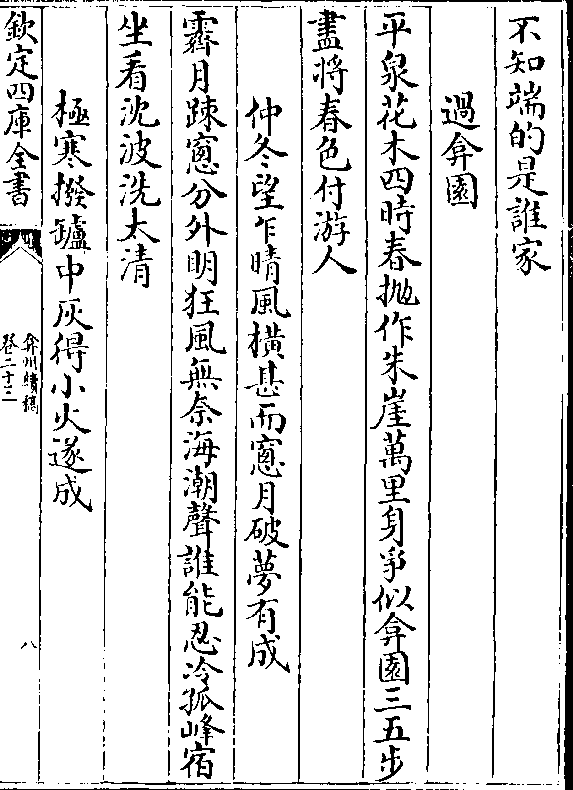 不知端的是誰家
過弇園
平泉花木四時春拋作朱崖萬里身爭似弇園三五步
盡將春色付游人
仲冬望乍晴風橫甚而窻月破夢有成
霽月踈窻分外明狂風無奈海潮聲誰能忍冷孤峰宿
坐看沈波洗太清
極寒撥罏中灰得小火遂成
欽定四庫全書
弇州續稿
卷二十二
八